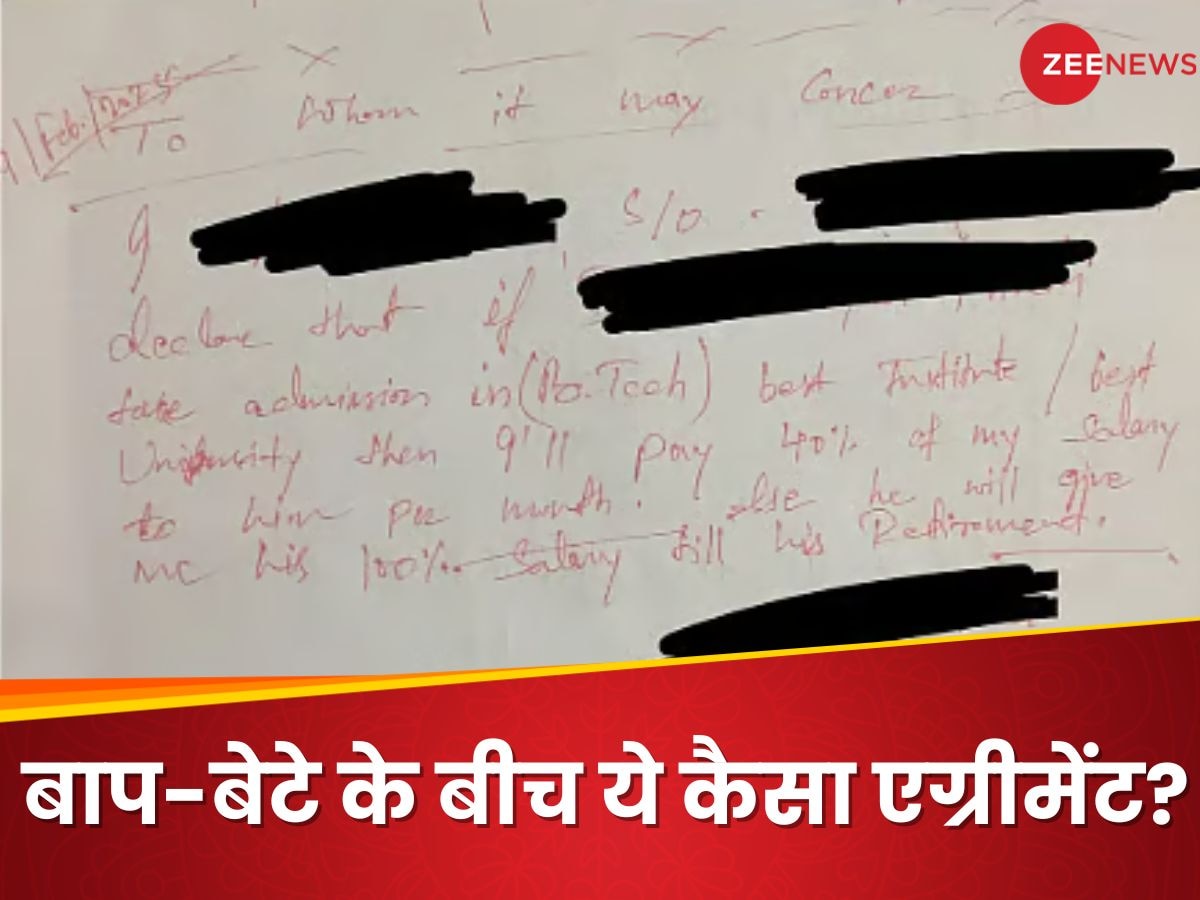 ZEENEWS
9/Feb/2025
To Whom it may Concer
I S/O.
declare that if
take admission in (B.Tech) best Institute / best
University then I'll pay 40% of my Salary
to him per month. else he will give
me his 100% Salary till his Retirement.
बाप-बेटे के बीच ये कैसा एग्रीमेंट?